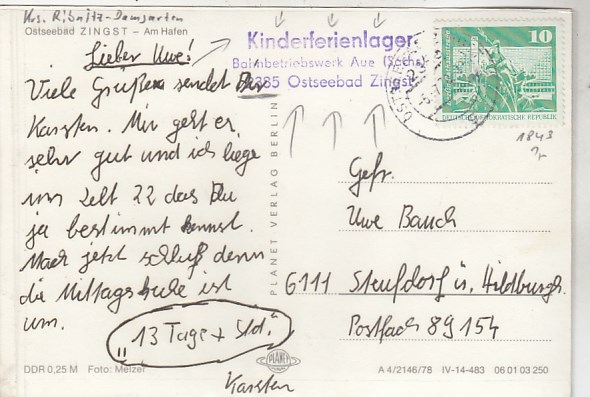 Krs. Ribnitz-Damgarten
Ostseebad ZINGST – Am Hafen
Lieber Uwe!
Viele Grüße sendet Dir
Karsten. Mir geht es
sehr gut und ich liege
im Zelt 22 das Du
ja bestimmt kennst.
Mach jetzt schluß denn
die Mittagsruhe ist
um.
"13 Tage + Std."
Karsten
DDR 0,25 M Foto: Melzer
PLANET VERLAG BERLIN
PLANET
Kinderferienlager
Bahnbetriebswerk Aue (Sachs)
2385 Ostseebad Zingst
10
DEUTSCHE DEMOKRATISCHE REPUBLIK
1843
Gefr.
Uwe Bauch
6111 Streufdorf ü. Hildburgh.
Postfach 89154
A 4/2146/78 IV-14-483 06 01 03 250